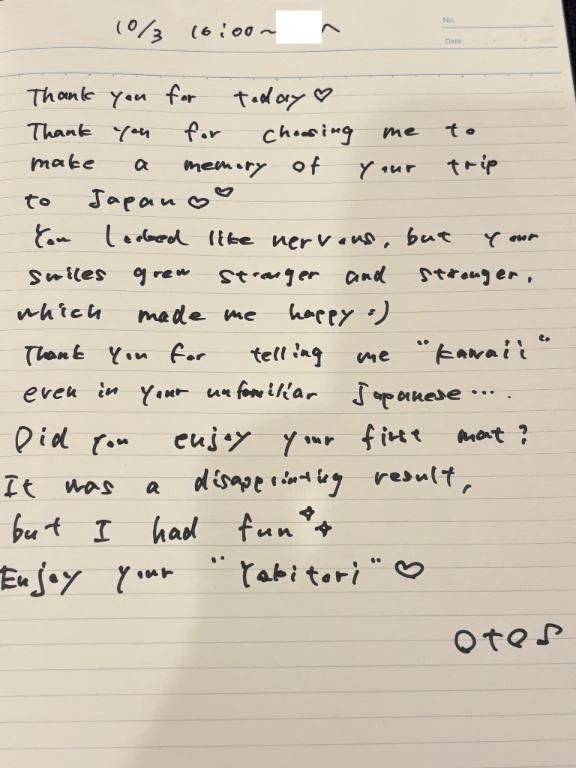 10/3 16:00~
No.
Date
Thank you for today♡
Thank you for choosing me to
make a memory of your trip
to Japan♡♡
You looked like nervous, but your
smiles grew stronger and stronger,
which made me happy :)
Thank you for telling me "kawaii"
even in your unfamiliar Japanese….
Did you enjoy your first mat?
It was a disappointing result,
but I had fun✧✧
Enjoy your "Yakitori"♡